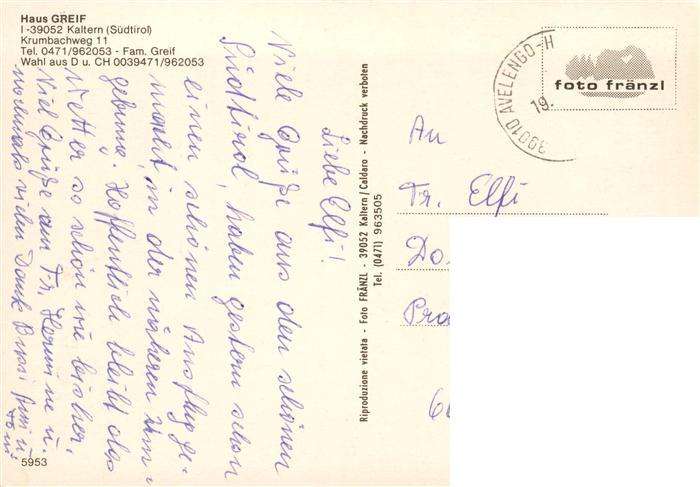 Haus GREIF
I-39052 Kaltern (Südtirol)
Krumbachweg 11
Tel. 0471/962053 - Fam. Greif
Wahl aus D u. CH 0039471/962053
Liebe Elfi!
Viele Grüße aus den schönen
Südtirol, haben gestern schon
einen schönen Ausflug ge-
macht in der näheren Um-
gebung. Hoffentlich bleibt das
Wetter so schön wie bisher,
Viel Grüße an Fr. Hermine u.
nochmals vielen Dank Bussi
Toni
5953
Riproduzione vietata - Foto FRÄNZL - 39052 Kaltern / Caldaro - Nachdruck verboten
Tel. (0471) 963505
39010 AVELENGO-H
19.
foto fränzl
An
Fr. Elfi
Do
Pra
6